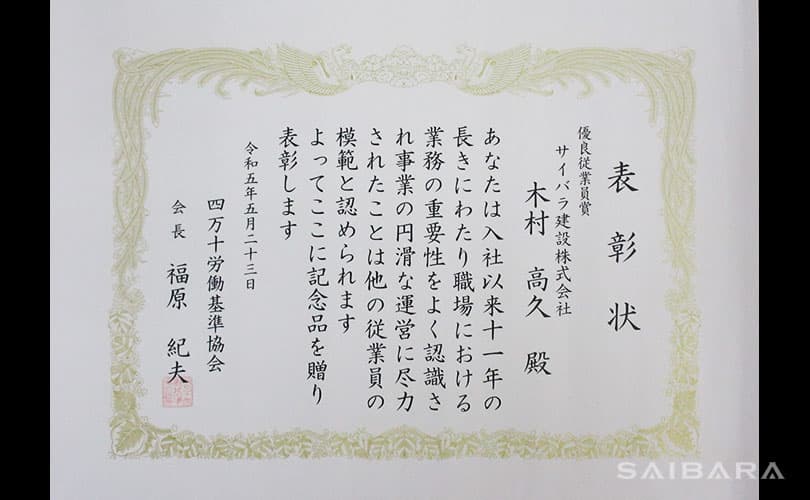 表彰状
優良従業員賞
サイバラ建設株式会社
木村 高久 殿
あなたは入社以来十一年の
長きにわたり職場における
業務の重要性をよく認識さ
れ事業の円滑な運営に尽力
されたことは他の従業員の
模範と認められます
よってここに記念品を贈り
表彰します
令和五年五月二十三日
四万十労働基準協会
会長 福原 紀夫
SAIBARA